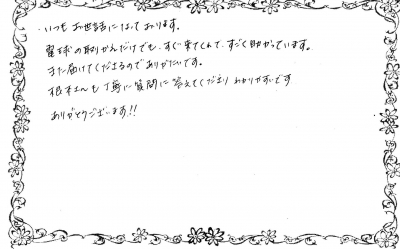 ・いつもお世話になっております。
電球の取りかえだけでも、すぐ来てくれて、すごく助かっています。
また届けてくださるのでありがたいです。
根本さんも丁寧に質問に答えてくださり わかりやすいです
ありがとうございます!!